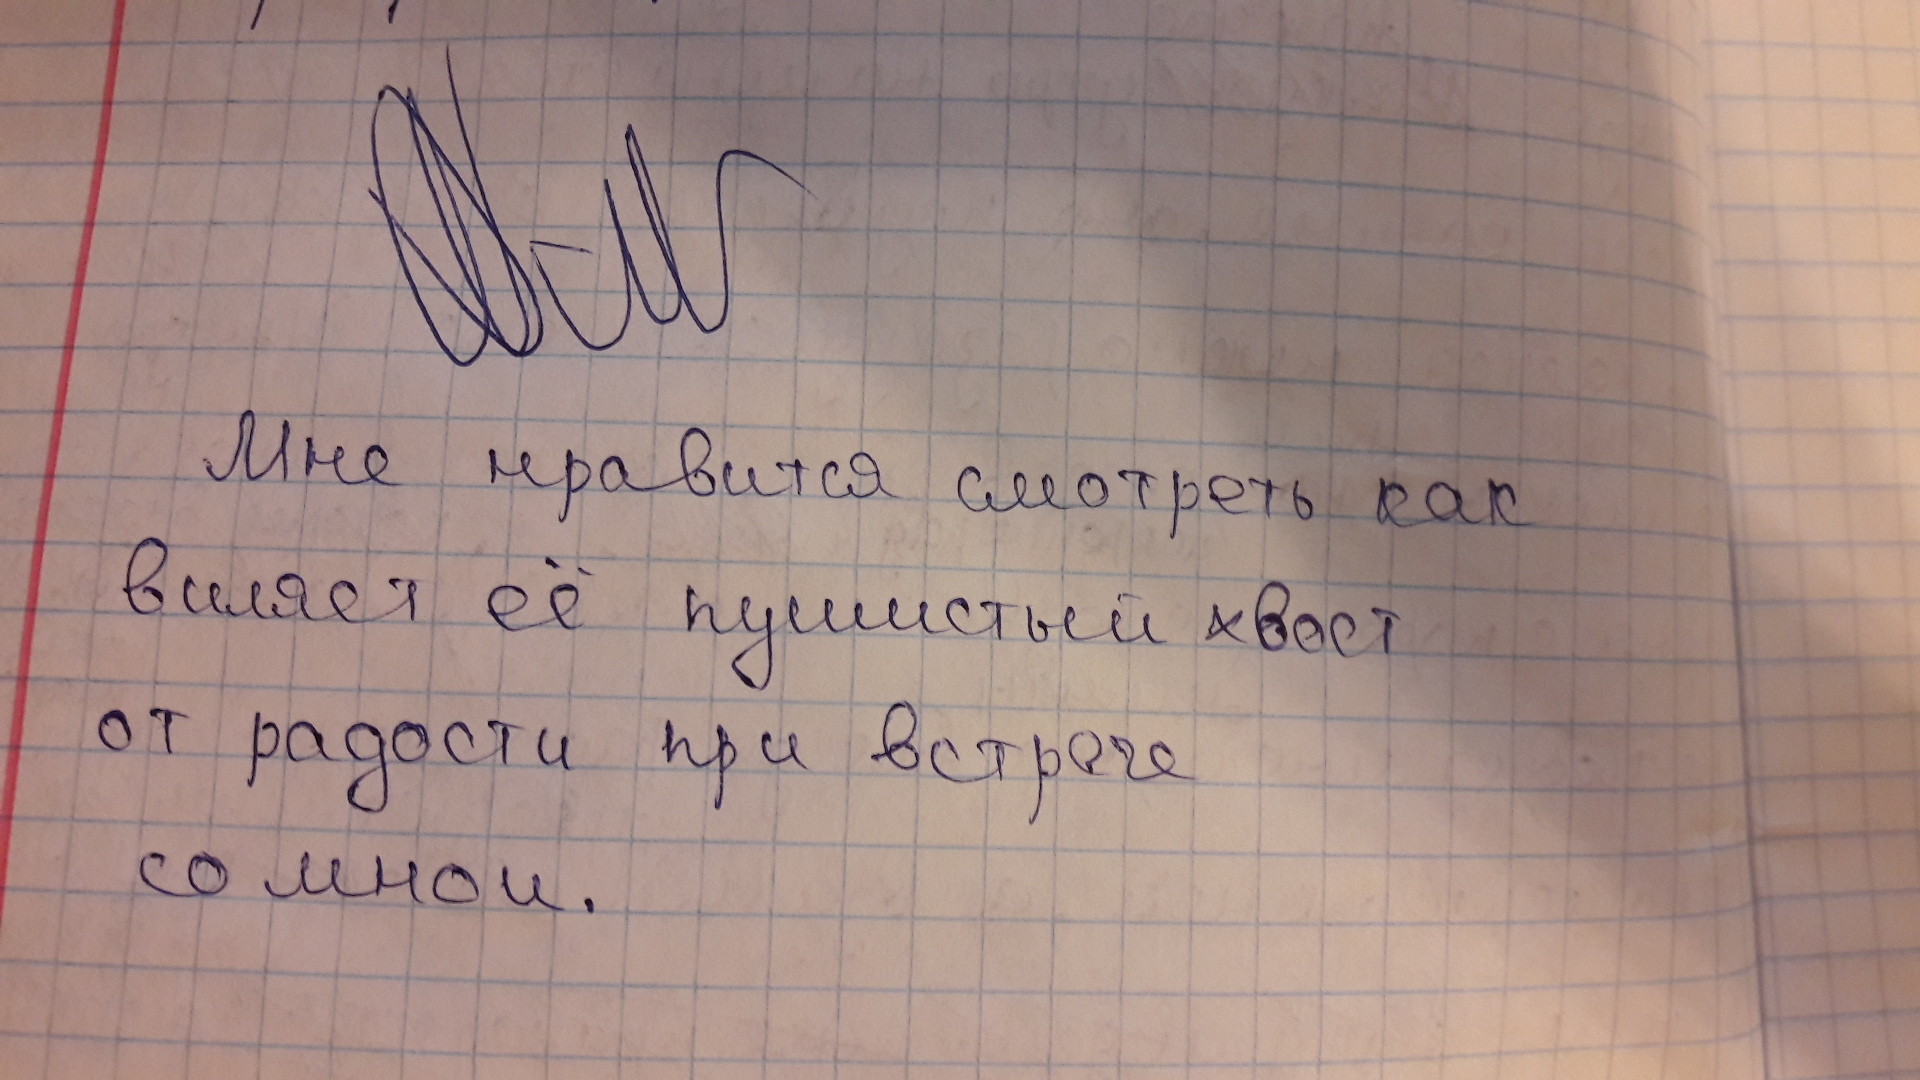 Мне нравится смотреть как
виляет её пушистый хвост
от радости при встрече
со мной.